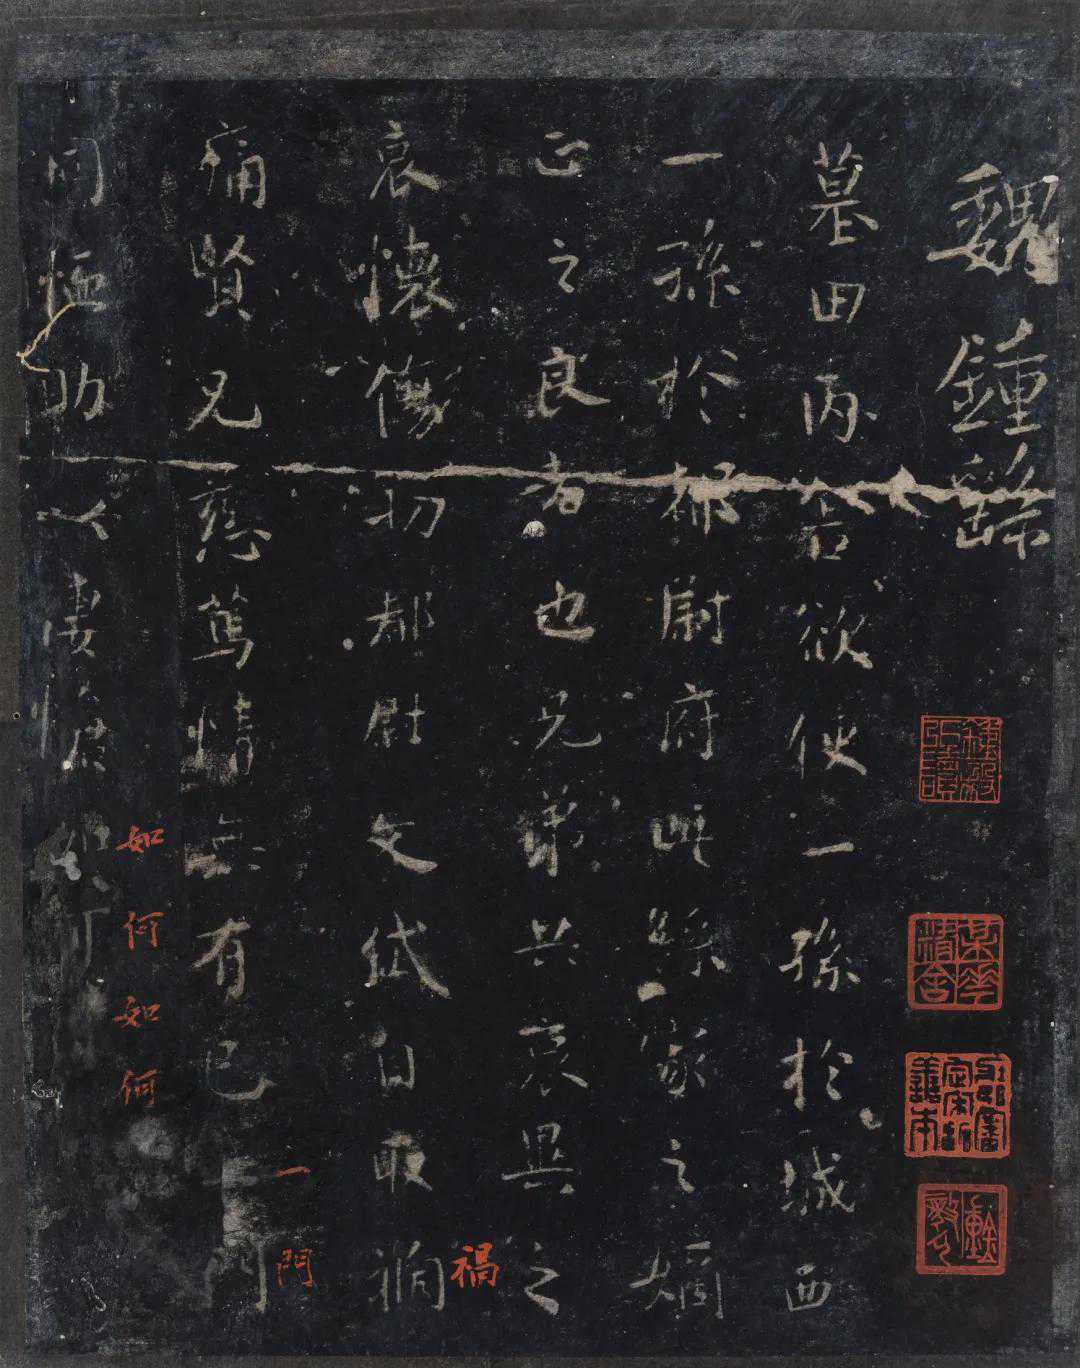 魏鍾繇
墓田丙舍欲使一孫於城西
一孫於都尉府此繇家之嫡
正之良者也兄弟共哀異之
禍
哀懷傷切都尉文岱自取禍
一門
痛賢兄慈篤情無有已一門
如何如何
同恤助以悽愴如何